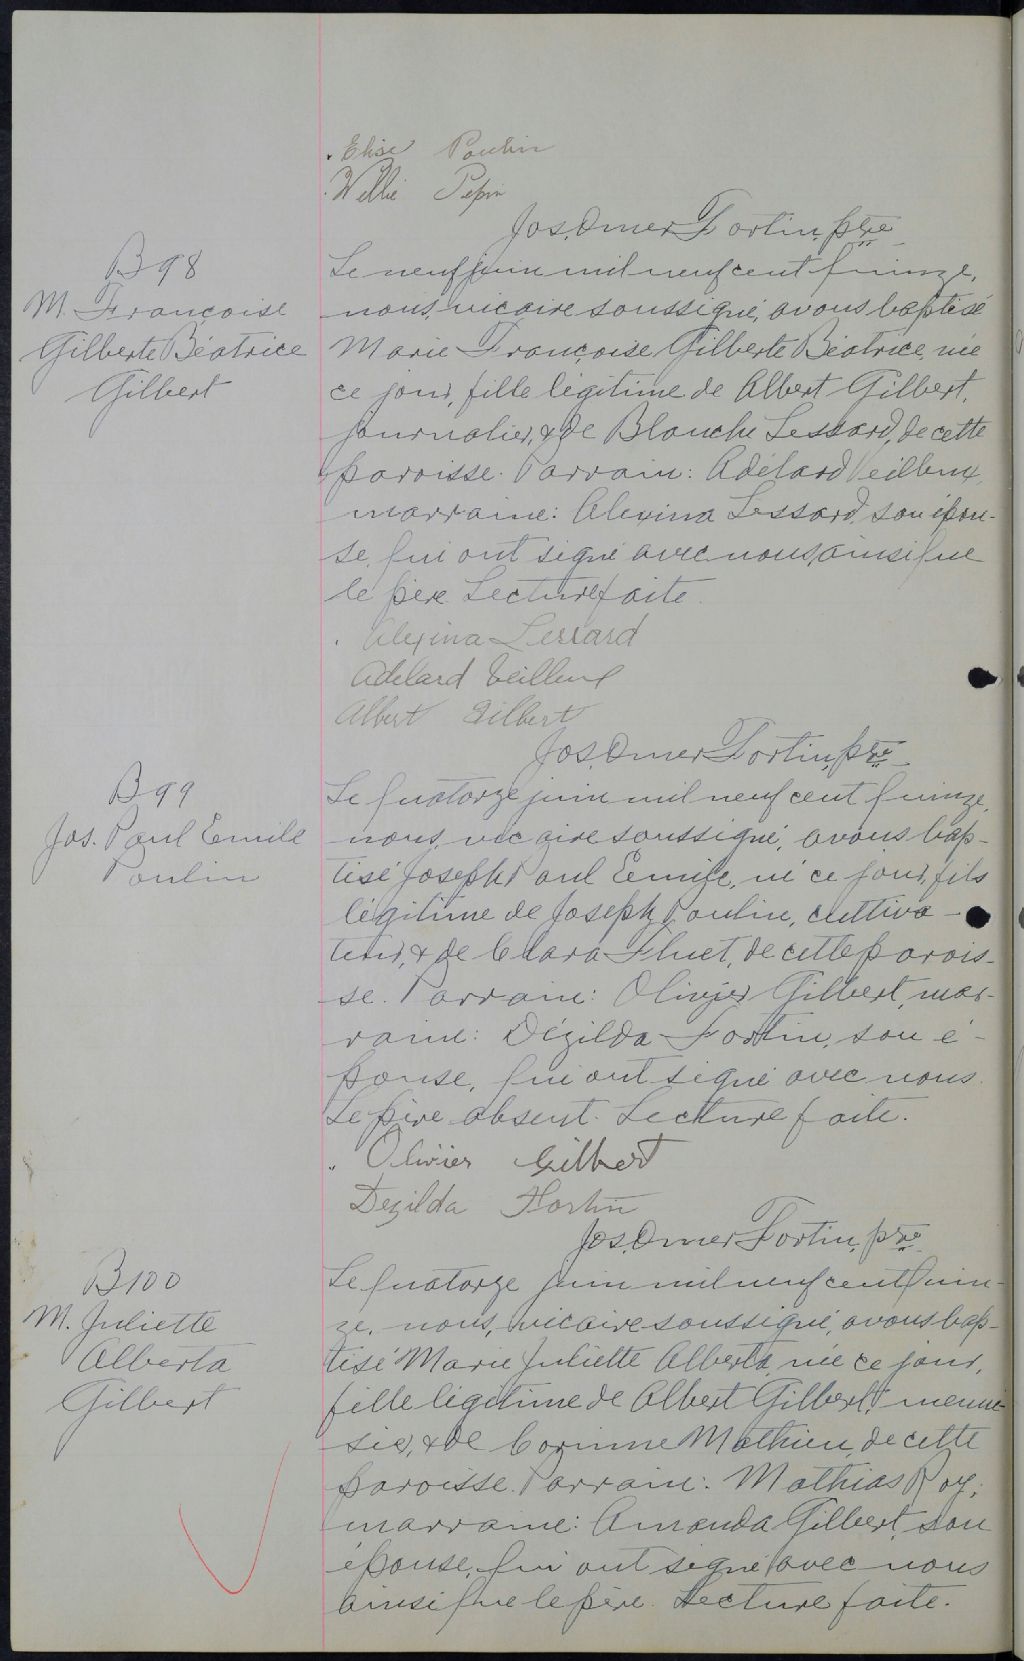 Elise Poulin
Willie Pepin
Jos. Omer Fortin, ptre
B 98
M. Françoise
Gilberte Béatrice
Gilbert
Le neuf juin mil neuf cent quinze,
nous, vicaire soussigné, avons baptisé
Marie Françoise Gilberte Béatrice, née
ce jour, fille légitime de Albert Gilbert,
journalier, & de Blanche Lessard, de cette
paroisse. Parrain: Adélard Veilleux,
marraine: Alexina Lessard, son épou-
se, qui ont signé avec nous, ainsi que
le père. Lecture faite.
Alexina Lessard
Adelard Veilleux
Albert Gilbert
Jos. Omer Fortin, ptre
B 99
Jos. Paul Emile
Poulin
Le quatorze juin mil neuf cent quinze,
nous, vicaire soussigné, avons bap-
tisé Joseph Paul Emile, né ce jour, fils
légitime de Joseph Poulin, cultiva-
teur, & de Clara Fluet, de cette parois-
se. Parrain: Olivier Gilbert, mar-
raine: Dézilda Fortin, son é-
pouse, qui ont signé avec nous.
Le père absent. Lecture faite.
Olivier Gilbert
Dezilda Fortin
Jos. Omer Fortin, ptre
B 100
M. Juliette
Alberta
Gilbert
Le quatorze juin mil neuf cent quin-
ze, nous, vicaire soussigné, avons bap-
tisé Marie Juliette Alberta, née ce jour,
fille légitime de Albert Gilbert, menui-
sier, & de Corinne Mathieu, de cette
paroisse. Parrain: Mathias Roy;
marraine: Amanda Gilbert, son
épouse, qui ont signé avec nous
ainsi que le père. Lecture faite.